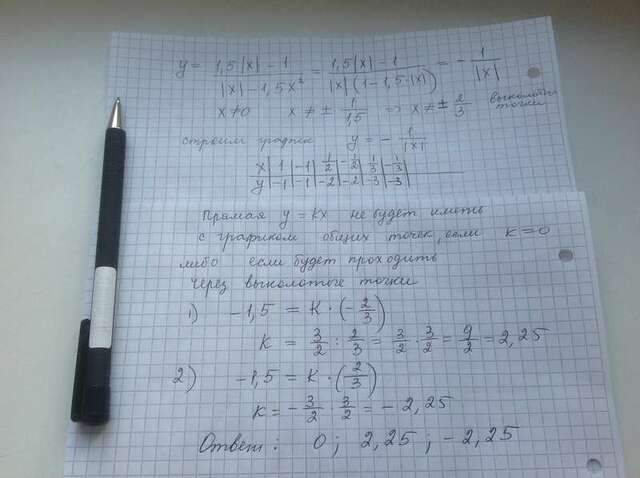 y = (1,5|x| - 1)/(|x| - 1,5x²) = (1,5|x| - 1)/(|x|(1 - 1,5·|x|)) = - 1/|x|
x ≠ 0 x ≠ ± 1/1,5 ⇒ x ≠ ± 2/3 выколотые точки
строим график y = - 1/|x|
x | 1 | -1 | 1/2 | -1/2 | 1/3 | -1/3
y | -1 | -1 | -2 | -2 | -3 | -3
Прямая y = kx не будет иметь
с графиком общих точек, если k = 0
либо если будет проходить
через выколотые точки
1) -1,5 = k · (-2/3)
k = 3/2 : 2/3 = 3/2 · 3/2 = 9/2 = 2,25
2) -1,5 = k · (2/3)
k = - 3/2 · 3/2 = - 2,25
Ответ: 0; 2,25; -2,25